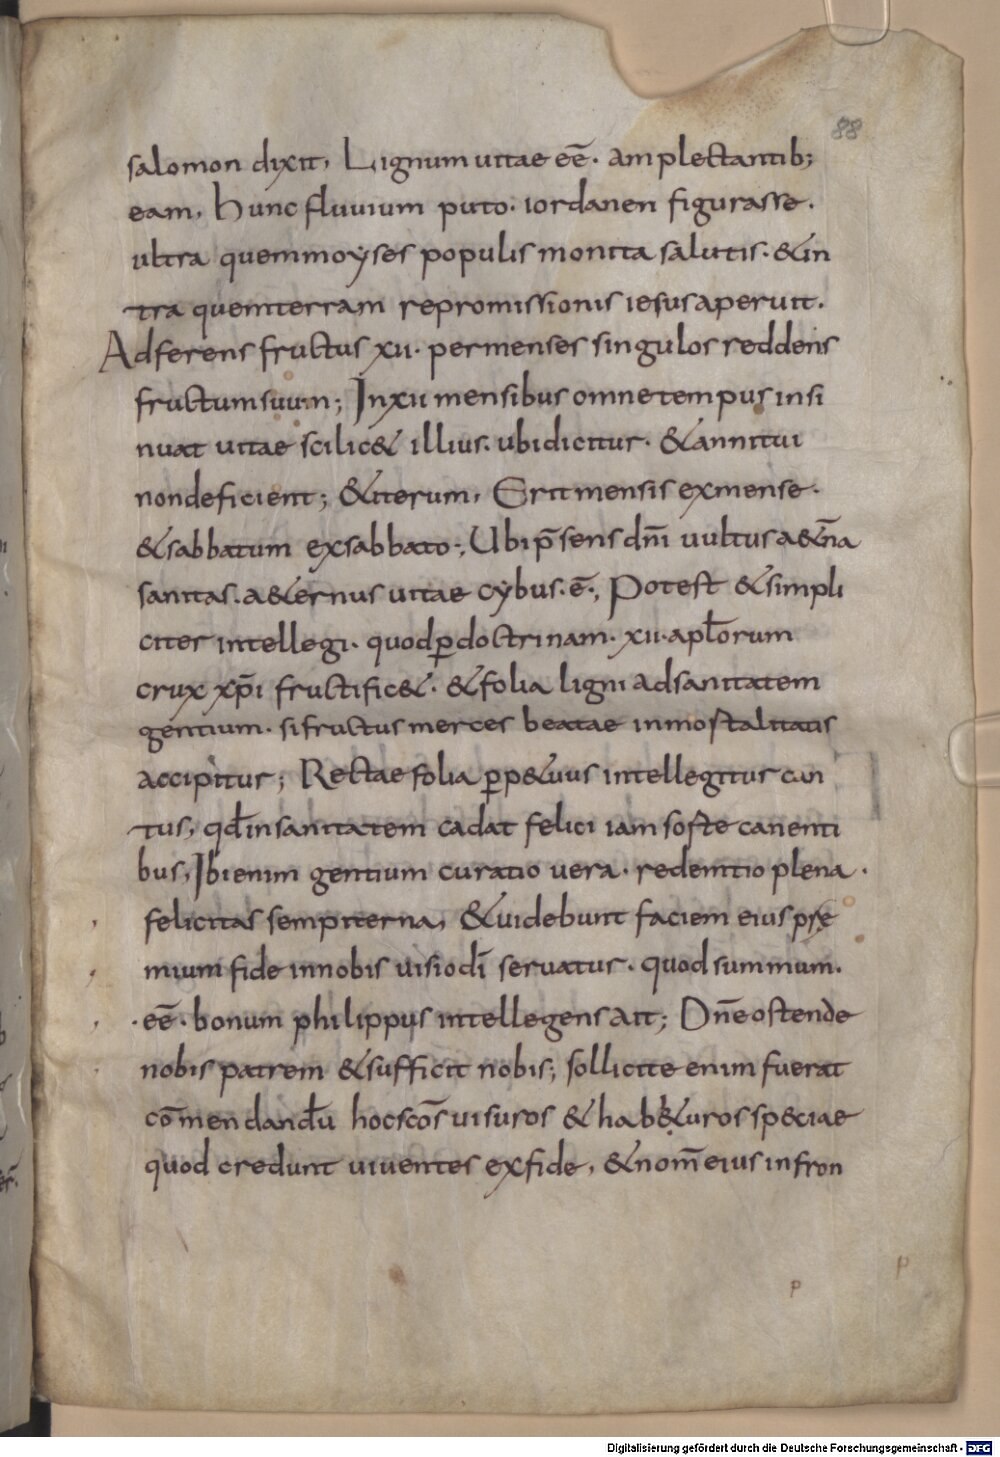 88
salomon dixit, Lignum uitae eē· amplectantib;
eam, hunc fluuium puto· iordanen figurasse·
ultra quemmoÿses populis monita salutis· &in
tra quemterram repromissionis iesusaperuit·
Adferens fructus xii· permenses singulos reddens
fructumsuum; Inxii mensibus omnetempus insi
nuat uitae scilic& illius· ubidicitur· &annitui
nondeficient; &iterum, Erit mensis exmense·
&sabbatum exsabbato·, Ubip̄sens dn̄i uultus a&n̄a
sanitas· a&ernus uitae cÿbus· ē·, Potest &simpli
citer intellegi· quodꝑdoctrinam· xii· aplorum
crux xp̄i fructific&· &folia ligni adsanitatem
gentium· sifructus merces beatae inmortalitatis
accipitur; Rectae folia ꝑp&uus intellegitur can
tus, qđinsanitatem cadat felici iam sorte canenti
bus, Ibienim gentium curatio uera· redemtio plena·
felicitas sempiterna, &uidebunt faciem eius prae
mium fide innobis uisiodī seruatur· quod summum·
·eē· bonum philippus intellegens ait; Dn̄e ostende
nobis patrem &sufficit nobis; sollicite enim fuerat
cōmendandū hocscōs uisuros &hab&uros speciae
quod credunt uiuentes exfide, &nom̄ eius infron
p
p
Digitalisierung gefördert durch die Deutsche Forschungsgemeinschaft - DFG